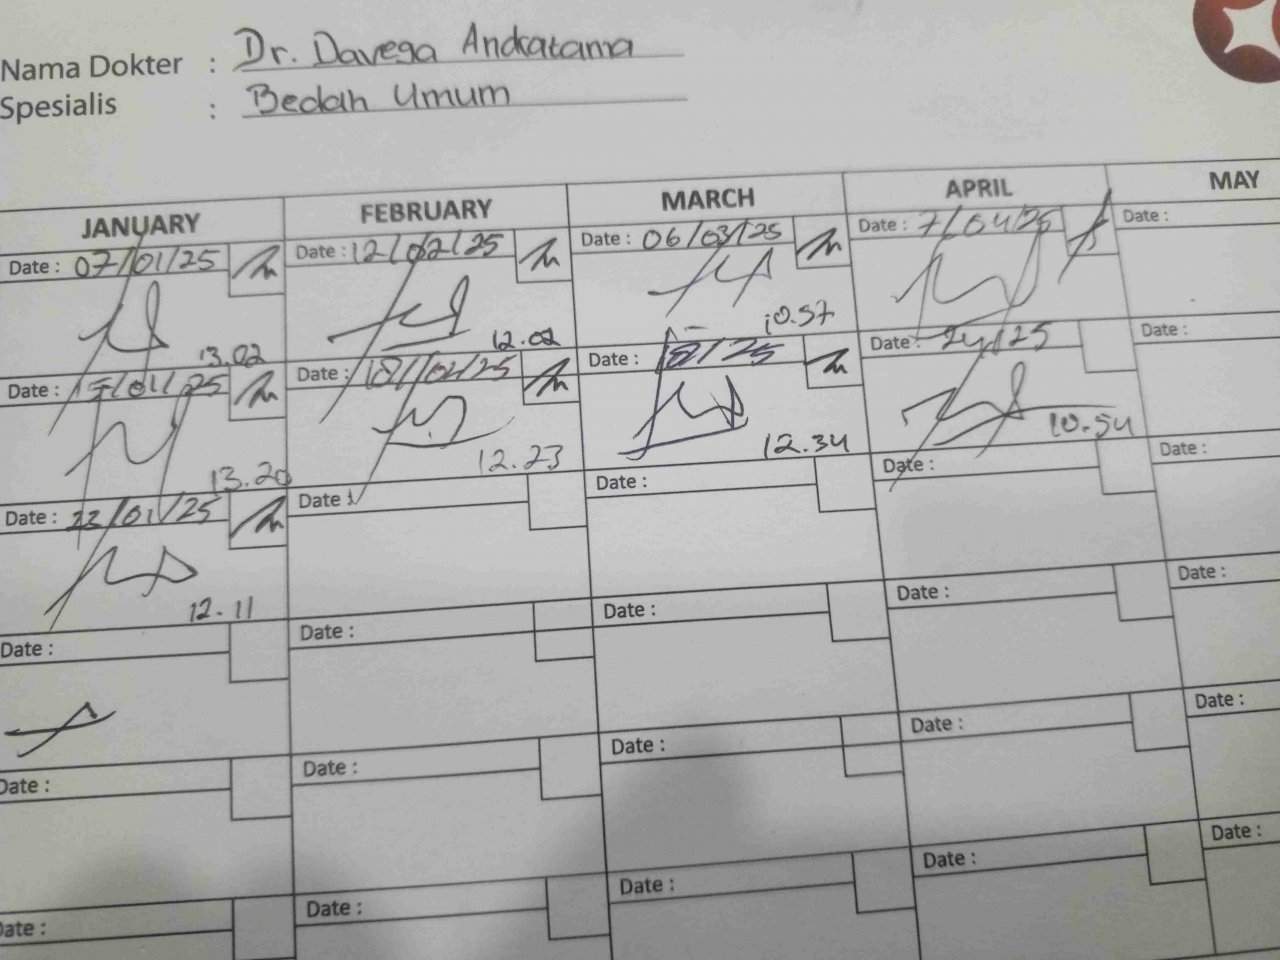 Nama Dokter : Dr. Davega Andratama
Spesialis : Bedah Umum
JANUARY FEBRUARY MARCH APRIL MAY
Date : 07/01/25 Date : 12/02/25 Date : 06/03/25 Date : 7/04/25 Date :
13.02 12.02 10.57
Date : 15/01/25 Date : 18/02/25 Date : Date : Date :
13.20 12.23 12.34 10.54
Date : 22/01/25 Date : Date : Date : Date :
12.11
Date : Date : Date : Date : Date :
Date : Date : Date : Date : Date :
Date : Date : Date : Date : Date :